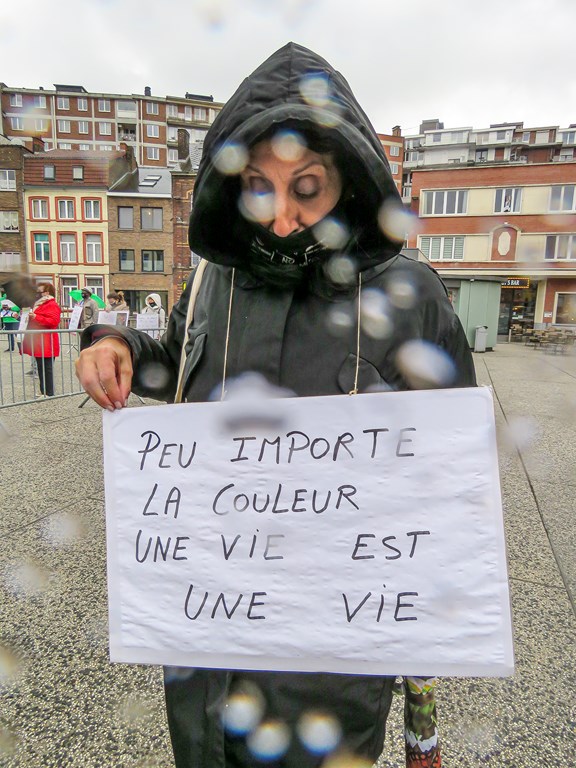 PEU IMPORTE
LA COULEUR
UNE VIE EST
UNE VIE
NO
'S BAR